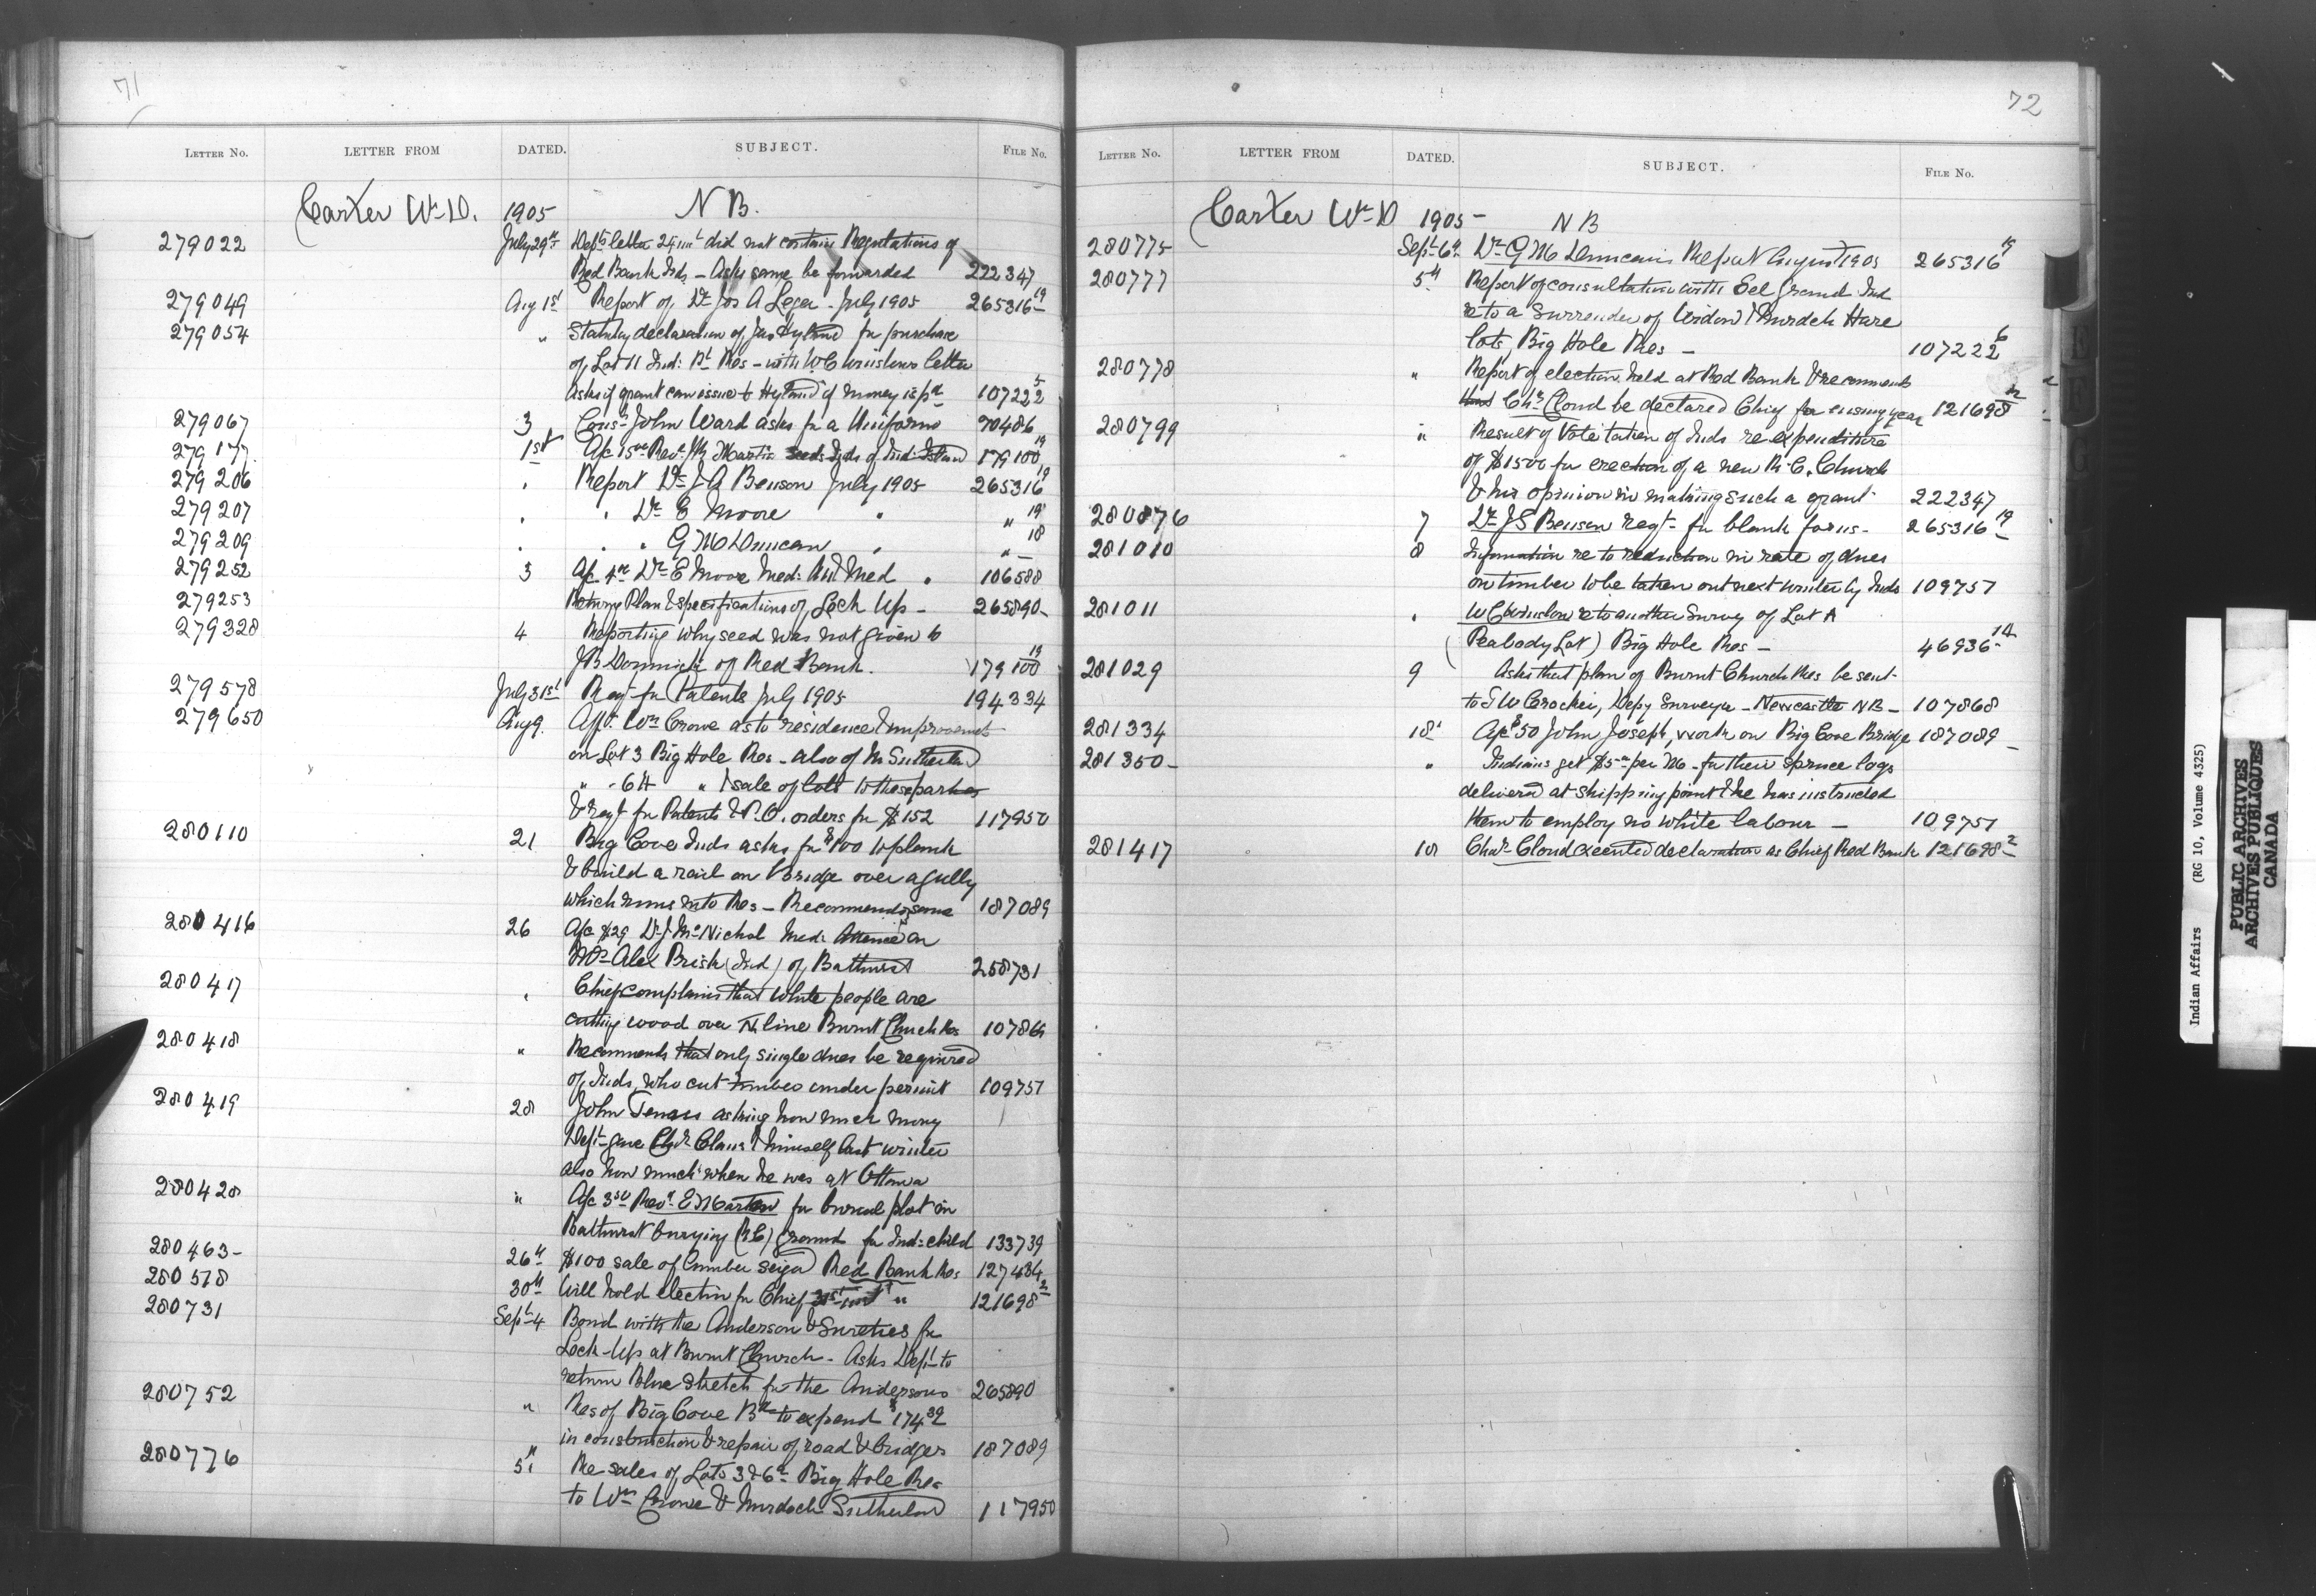 71
LETTER NO. LETTER FROM DATED. SUBJECT. FILE No.
Carter Wm D. 1905 N B.
279022 July 29th Depts letter 25 inst did not contain Regulations of
Red Bank Inds - Asks same be forwarded 222347
279049 Aug 1st Report of Dr Jos A Leger - July 1905 265316 19
279054 " Statutory declaration of Jas Hyland for purchase
of Lot 11 Ind: Pt Res - with W C Winslows letter
Asks if grant can issue to Hyland if money is pd 107222 5
279067 3 Cons- John Ward asks for a Uniform 70486
279177 1st A/c 15 00 Revd Martin seeds Inds of Ind: Island 179100 19
279206 " Report Dr J A Benson July 1905 265316 19
279207 " " Dr E Moore " " 19
279209 " " " G M Duncan " " 18
279252 3 A/c Dr E Moore Med: Med " 106588
279253 Returns Plan & specifications of Lock Up - 265890-
279328 4 Reporting why seed was not given to
J B Dominick of Red Bank. 179100 19
279578 July 31st Reqt for Patents July 1905 194334
279650 Aug 9. Afft. Wm Crowe as to residence & improvements
on Lot 3 Big Hole Res - also of M Sutherland
" - 6 " & sale of lots to these parties
& reqt for Patents & P.O. orders for $152 117950
280110 21 Big Cove Inds asks for $100 to plank
& build a rail on bridge over a gully
which runs into Res - Recommends same 187089
280416 26 A/c $29 Dr J McNichol Med: Attence on
Mrs Alex Brisk (Ind) of Bathurst 258731
280417 " Chief complains that white people are
cutting wood over N. line Burnt Church Res 107868
280418 " Recommends that only single dues be required
of Inds, who cut timber under permit 109751
280419 28 John asking how much money
Dept gave & himself last winter
also how much when he was at Ottawa
280420 " A/c 3 50 Revd E Martin for burial plot in
Bathurst burying (R.C.) ground for Ind: child 133739
280463- 26th $100 sale of lumber seized Red Bank Res 127484
280578 30th Will hold election for Chief 31st inst " 121698 2
280731 Sept 4 Bond with the Anderson & Sureties for
Lock-Up at Burnt Church - Asks Dept to
return Blue Sketch for the Andersons 265890
280752 " Res of Big Cove Bd to expend $174.32
in construction & repair of road & bridges 187089
280776 5 " Re sales of Lots 3 & 6 - Big Hole Res-
to Wm Crowe & Murdoch Sutherland 117950
72
LETTER NO. LETTER FROM DATED. SUBJECT. FILE No.
Carter Wm D 1905 - N B
280775 Sept 6th Dr G M Duncans Report August 1905 265316 19
280777 5th Report of consultation with Eel Ground Ind
re to a Surrender of Widow & Murdoch Hare
lots, Big Hole Res - 107222 6
280778 " Report of election held at Red Bank & recommends
Chs Cloud be declared Chief for ensuing year 121698 2
280799 " Result of Vote taken of Inds re expenditure
of $1500 for erection of a new R.C. Church
& his opinion in making such a grant- 222347
280876 7 Dr J S Benson reqt - for blank forms - 265316 19
281010 8 Information re to reduction in rate of dues
on timber to be taken out next winter by Inds 109751
281011 " W C Winslow re to another Survey of Lot A
(Peabody Lot) Big Hole Res - 46936-
281029 9 Asks that plan of Burnt Church Res be sent-
to T W Crocker, Depy Surveyor - Newcastle NB - 107868
281334 18 A/c $50 John Joseph, work on Big Cove Bridge 187089-
281350- " Indians get $5 00 per M - for their spruce logs
delivered at shipping point & he has instructed
them to employ no white labour - 109751
281417 18 Chas Cloud executed declaration as Chief Red Bank 121698-2
Indian Affairs (RG 10, Volume 4325)
PUBLIC ARCHIVES
ARCHIVES PUBLIQUES
CANADA